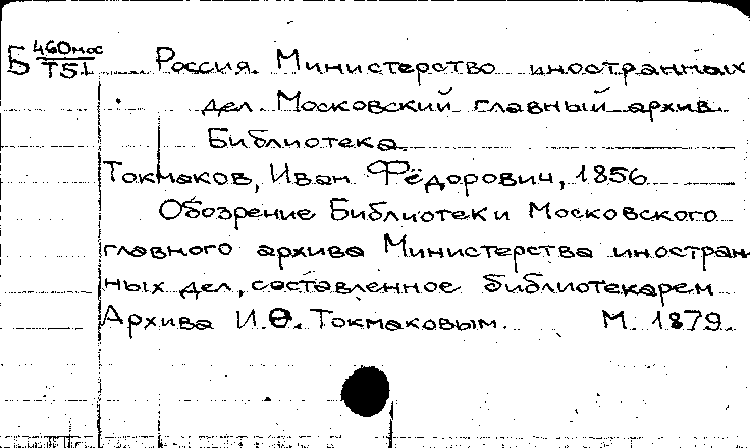 Б 460мос Россия. Министерство иностранных
Т51 дел. Московский главный архив.
Библиотека.
Токмаков, Иван Фёдорович, 1856
Обозрение Библиотеки Московского
главного архива Министерства иностран
ных дел, составленное библиотекарем
Архива И.Ѳ. Токмаковым. М. 1879.